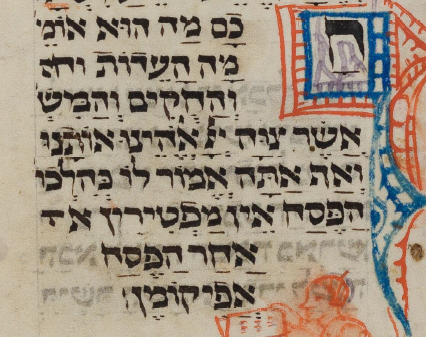 חכם מה הוא אומ
מה העדות
והחקים והמש
אשר צוה יי אלהינו אותנו
ואף אתה אמור לו כהלכו
הפסח אין מפטירין אח
אחר הפסח
אפיקומן